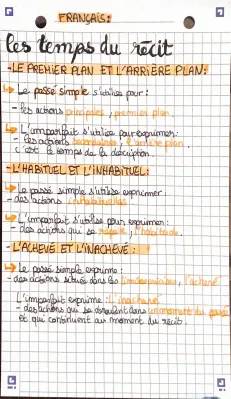 FRANÇAIS:
les temps du récit
-LE PREMIER PLAN ET L'ARRIÈRE PLAN:
Le passé simple s'utilise pour:
- les actions principales, premier plan
L'imparfait s'utilise pour exprimer:
- les actions secondaires, l'arrière plan
c'est le temps de la description.
-L'HABITUEL ET L'INHABITUEL:
Le passé simple s'utilise exprimer
- des actions inhabituelles
L'imparfait s'utilise pour exprimer:
- des actions qui se répète, l'habitude.
-L'ACHEVÉ ET L'INACHEVÉ:
Le passé simple exprime:
- des actions situés dans les, l'achevé
L'imparfait exprime: L'inachevé
- des actions qui se déroulent dans un moment du passé
et qui continuent au moment du récit.